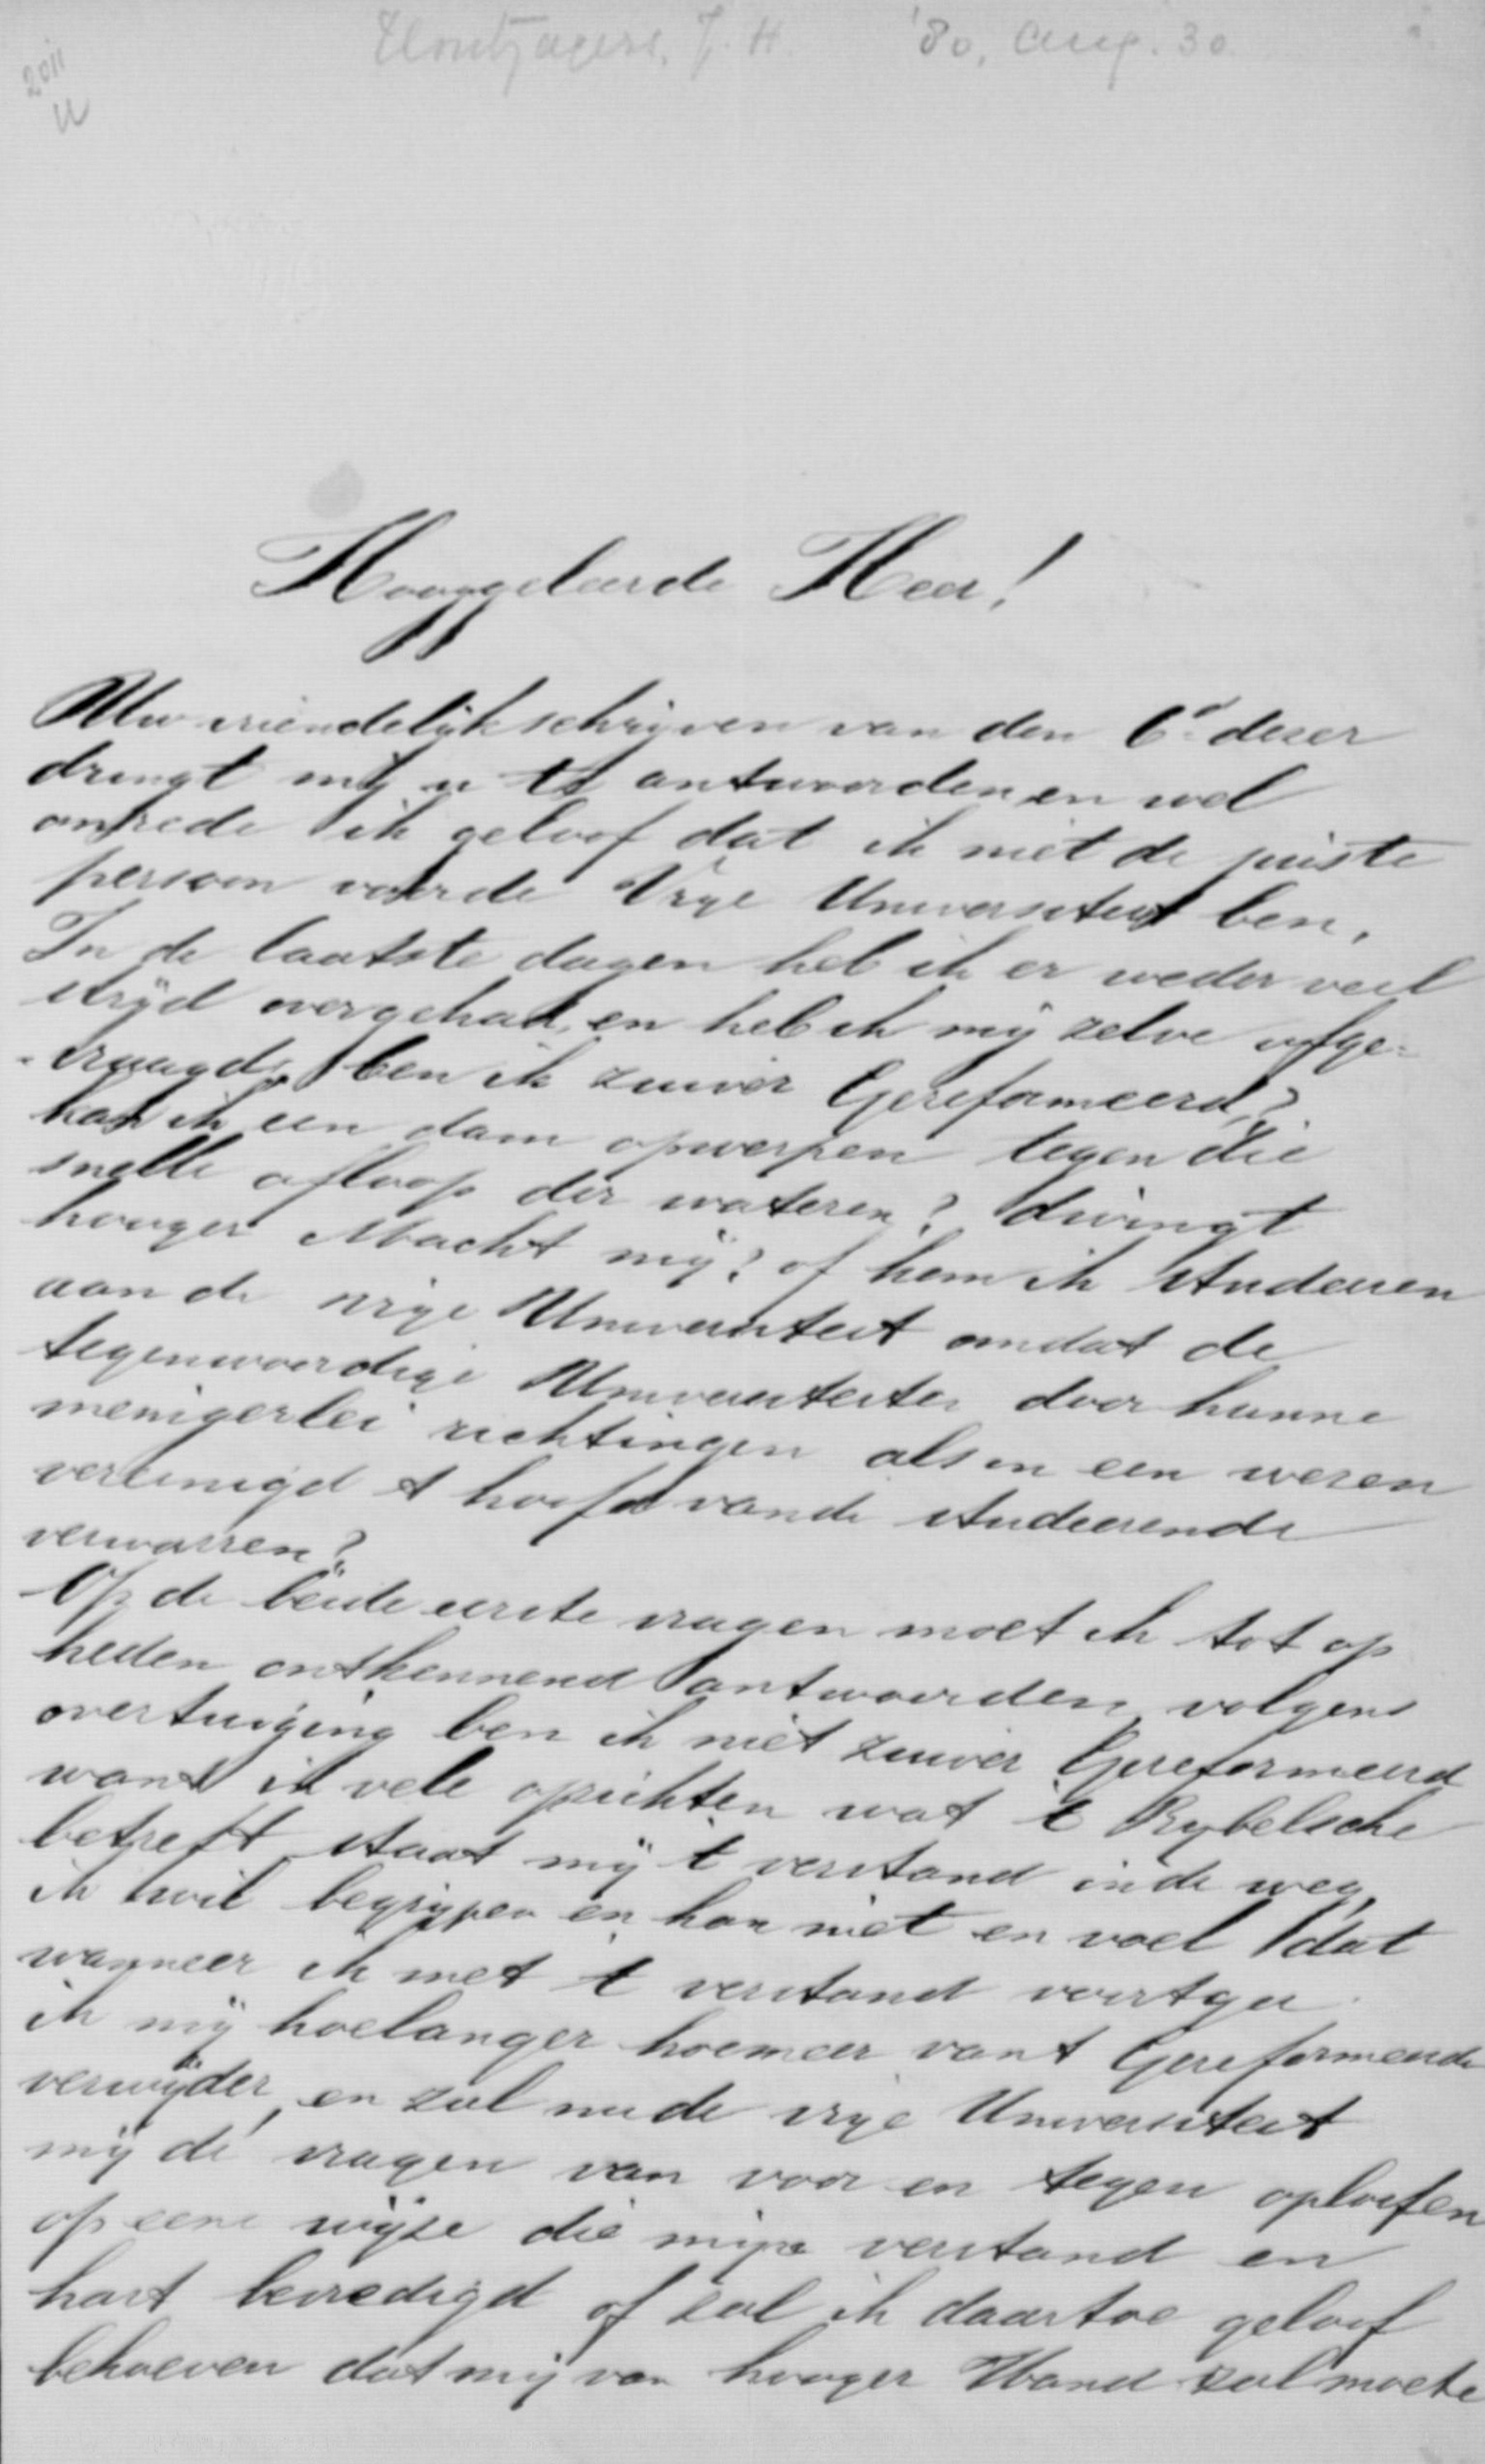 Houtzagers, J. H. '80, Aug. 30.
2011
Hooggeleerde Heer!
Uw vriendelijk schrijven van den 6e dezer
dringt mij u te antwoorden en wel
omrede ik geloof dat ik niet de juiste
persoon voor de Vrije Universiteit ben.
In de laatste dagen heb ik er weder veel
strijd over gehad, en heb ik mij zelve afge-
-vraagd, ben ik zuiver Gereformeerd?
kan ik een dam opwerpen tegen die
snelle afloop der wateren? dwingt
hooger Macht mij? of kom ik studeeren
aan de vrije Universiteit omdat de
tegenwoordige Universiteiten door hunne
menigerlei richtingen als in een wezen
vereenigd 't hoofd van de studeerende
verwarren?
Op de beide eerste vragen moet ik tot op
heden ontkennend antwoorden, volgens
overtuiging ben ik niet zuiver Gereformeerd
want in vele opzichten wat 't Bybelsche
betreft staat mij 't verstand in de weg,
ik wil begrijpen en kan niet en voel dat
wanneer ik met 't verstand voortga
ik mij hoelanger hoemeer van 't Gereformeerde
verwijder, en zal nu de vrije Universiteit
mij de vragen van voor en tegen oplossen
op eene wijze die mijn verstand en
hart bevredigd of zal ik daartoe geloof
behoeven dat mij van hooger Hand zal moete